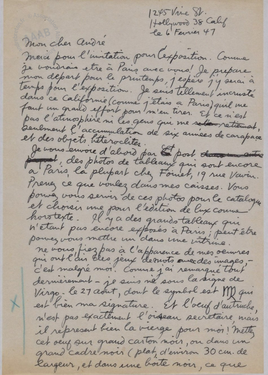 1245 Vine St.
Hollywood 38 Calif
le 6 Fevrier 47
Mon cher André
Merci pour l'invitation pour l'exposition. Comme
je voudrais être à Paris avec vous! Je prepare
mon départ pour le printemps, j'espère j'y serai à
temps pour l'exposition. Je suis tellement incrusté
dans ce Californie (comme j'étais à Paris) qu'il me
faut un grand effort pour m'en tirer. Et ce n'est
pas l'atmosphère ni les gens qui me
seulement l'accumulation de six années de carapace
et des objets hétéroclites.
Je vous envoie d'abord par post
des photos de tableaux qui sont encore
à Paris, la plupart chez Foinet, 19 rue Vavin.
Prenez ce que voulez dans mes caisses. Vous
pouvez vous servir de ces photos pour le catalogue
et choisir pour l'édition de luxe comme
horstexte. Il y a des grands tableaux qui
n'étaient pas encore exposés à Paris; peut être
pouvez vous mettre un dans une vitrine.
ne vous fiez pas à l'apparence de mes œuvres
qui ont l'air des jeux de mots images -
c'est malgré moi. Comme j'ai remarqué tout
dernièrement - je suis né sous le signe de
Virgo. le 27 août, dont le symbol est ♍ qui
est bien ma signature. Et l'oeuf d'autruche,
n'est pas exactement l'oiseau secretaire, mais
il represent bien la vierge pour moi! Mettez
cet oeuf sur grand carton noir, ou dans un
grand cadre noir (plat, d'environ 30 cm. de
largeur, et dans une boite noir, ce que